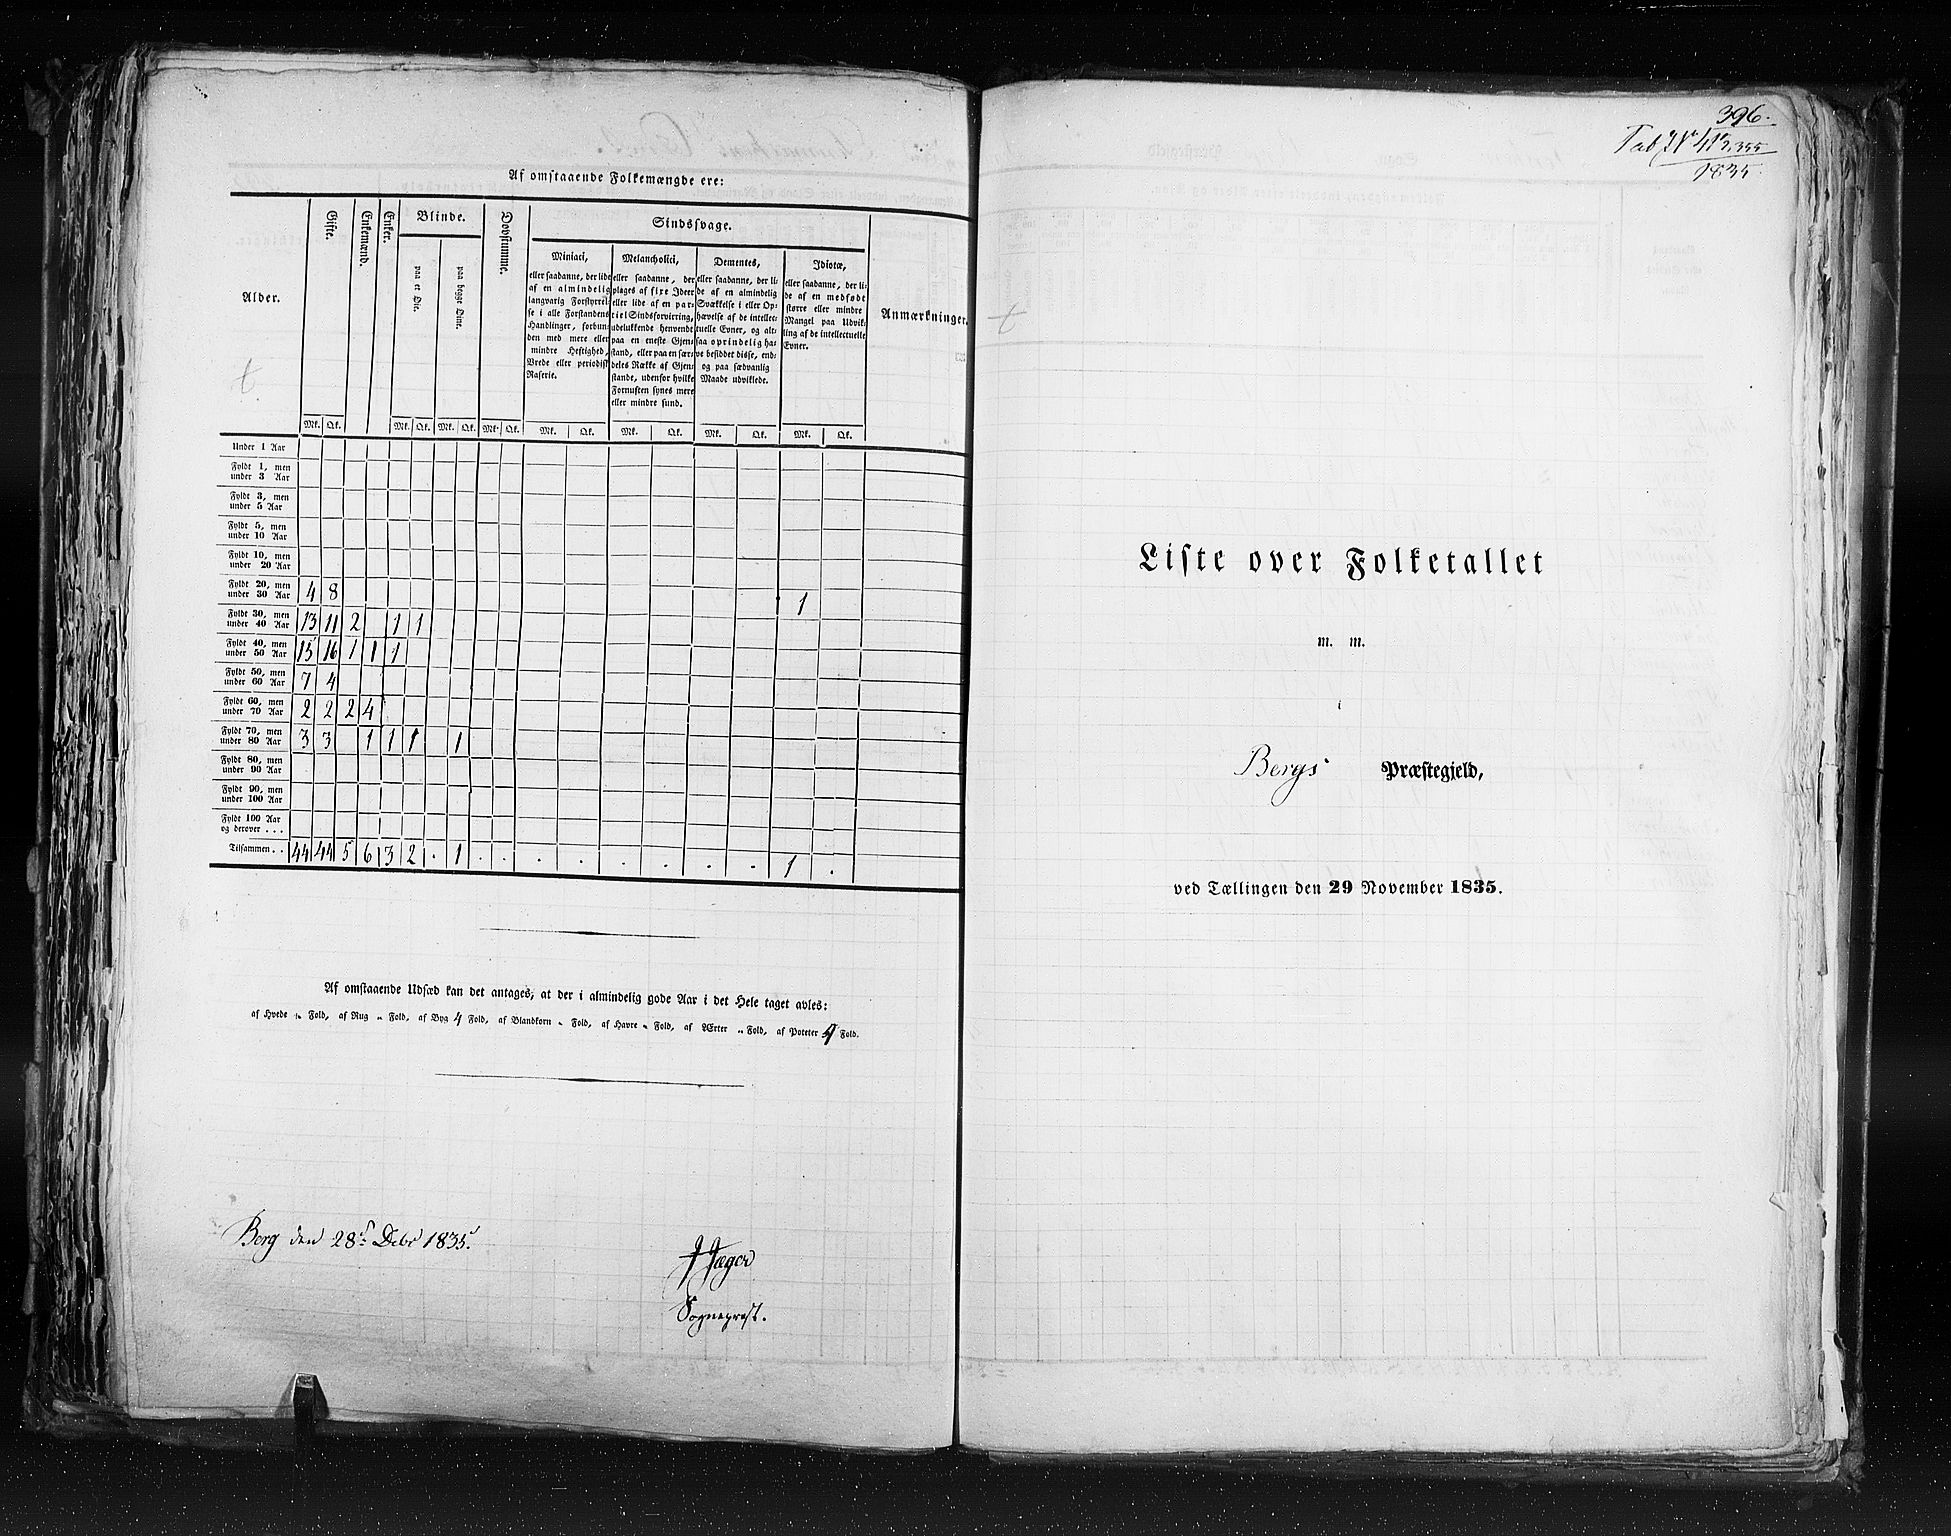 Af omstaaende Folkemængde ere:
Alder.
Gifte.
Enkemænd.
Enker.
Blinde.
paa et Øie.
paa begge Øine.
Døvstumme.
Sindssvage.
Miniaci,
eller saadanne, der lide
af en almindelig
langvarig Forstyrrel-
se i alle Forstandens
Handlinger, forbun-
den med mere eller
mindre Heftighed,
Vrede eller periodisk
Raserie.
Melancholici,
eller saadanne, der
plages af fixe Ideer
eller lide af en par-
tiel Sindsforvirring,
udelukkende henvendt
paa en eneste Gjen-
stand, eller paa en sær-
deles Række af Gjen-
stande, udenfor hvilke
Fornuften synes mere
eller mindre sund.
Dementes,
eller saadanne, der li-
de af en almindelig
Svækkelse i eller Op-
hævelse af de intellec-
tuelle Evner, og alt-
saa oprindelig ha-
ve besiddet disse, end-
og paa sædvanlig
Maade udviklede.
Idiotæ,
eller saadanne, der li-
de af en medfødt
større eller mindre
Mangel paa Udvik-
ling af de intellectuelle
Evner.
Anmærkninger.
Mk. Qk. Mk. Qk. Mk. Qk. Mk. Qk. Mk. Qk. Mk. Qk. Mk. Qk. Mk. Qk.
Under 1 Aar
Fyldt 1, men
under 3 Aar
Fyldt 3, men
under 5 Aar
Fyldt 5, men
under 10 Aar
Fyldt 10, men
under 20 Aar
Fyldt 20, men
under 30 Aar 4 8 1
Fyldt 30, men
under 40 Aar 13 11 2 1 1
Fyldt 40, men
under 50 Aar 15 16 1 1 1
Fyldt 50, men
under 60 Aar 7 4
Fyldt 60, men
under 70 Aar 2 2 2 4
Fyldt 70, men
under 80 Aar 3 3 1 1 1 1
Fyldt 80, men
under 90 Aar
Fyldt 90, men
under 100 Aar
Fyldt 100 Aar
og derover . . .
Tilsammen . . 44 44 5 6 3 2 . 1 . . . . . . . . 1 .
Af omstaaende Udsæd kan det antages, at der i almindelig gode Aar i det Hele taget avles:
af Hvede " Fold, af Rug " Fold, af Byg 4 Fold, af Blandkorn " Fold, af Havre " Fold, af Ærter " Fold, af Poteter Fold.
Berg den 28de Debr 1835.
Sogneprest.
396.
1835
Liste over Folketallet
m. m.
i
Bergs Præstegjeld,
ved Tællingen den 29 November 1835.